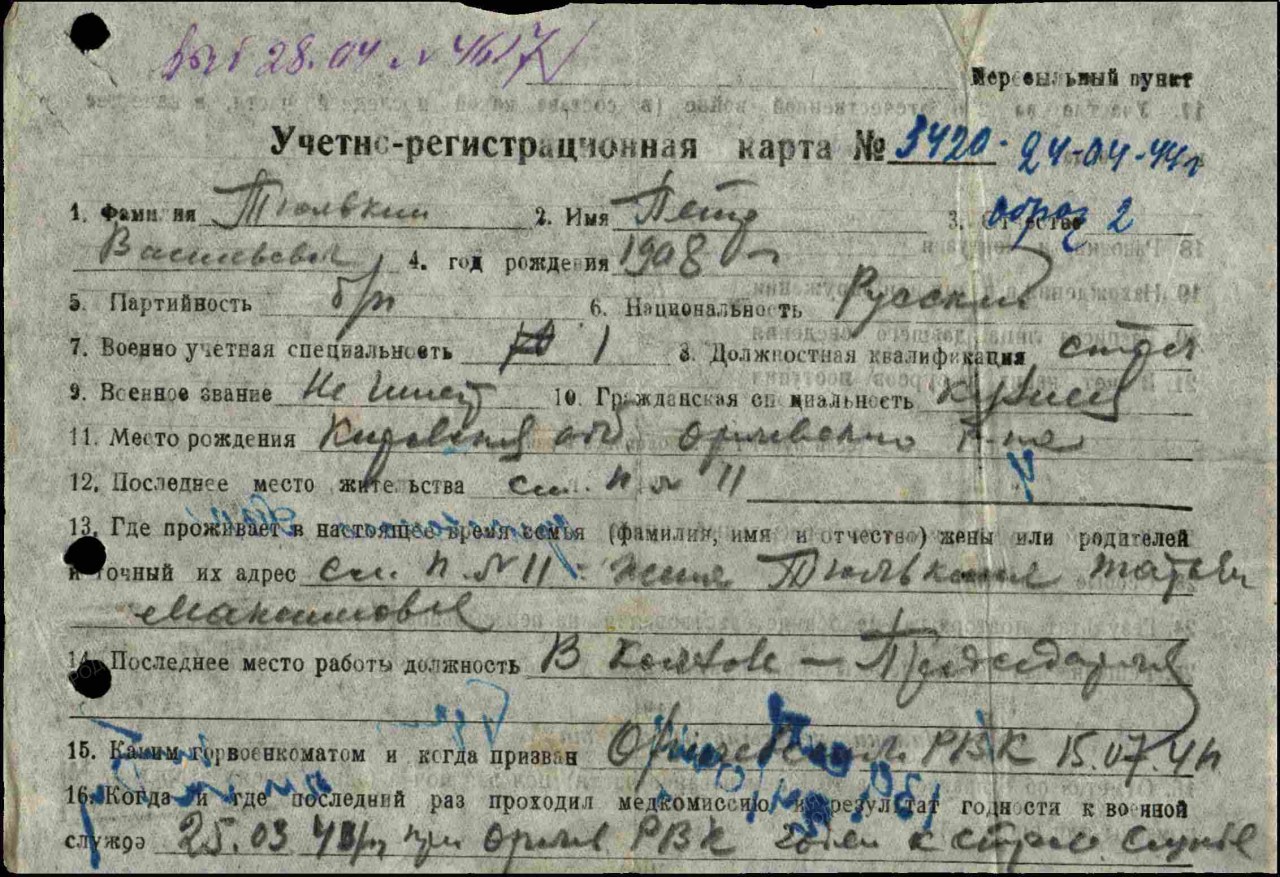 28.04 № 4617
Пересыльный пункт
Учетно-регистрационная карта № 3420 - 24-04-44г
1. Фамилия Тюлькин 2. Имя Петр 3. Отчество
Васильевич 4. год рождения 1908 г
5. Партийность б/п 6. Национальность Русский
7. Военно учетная специальность 1 8. Должностная квалификация стрел
9. Военное звание Не имеет 10. Гражданская специальность Кузнец
11. Место рождения Кировская обл р-на
12. Последнее место жительства см. п № 11
13. Где проживает в настоящее время семья (фамилия, имя и отчество) жены или родителей
и точный их адрес см. п № 11 - жена Тюлькина
Максимовна
14. Последнее место работы должность В колхозе — Председателя
15. Каким горвоенкоматом и когда призван РВК 15.07.41
16. Когда и где последний раз проходил медкомиссию и результат годности к военной
службе 25.03 при РВК годен к строев службе